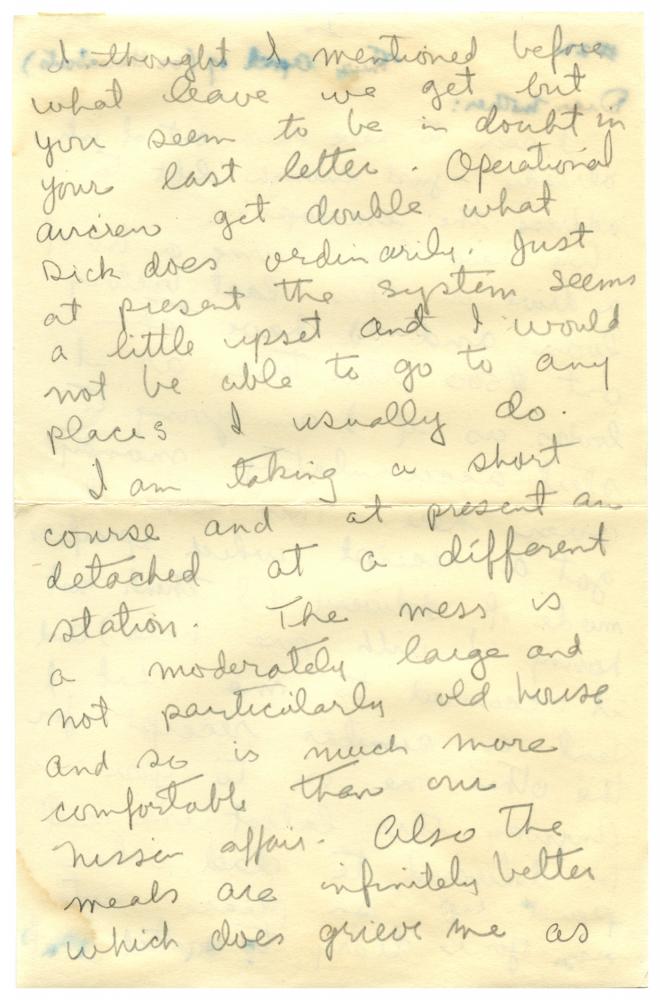 I thought I mentioned before
what leave we get but
you seem to be in doubt in
your last letter. Operational
aircrew get double what
Dick does ordinarily. Just
at present the system seems
a little upset and I would
not be able to go to any
places I usually do.
I am taking a short
course and at present am
detached at a different
station. The mess is
a moderately large and
not particularly old house
and so is much more
comfortable than our
nissen affair. Also the
meals are infinitely better
which does grieve me as